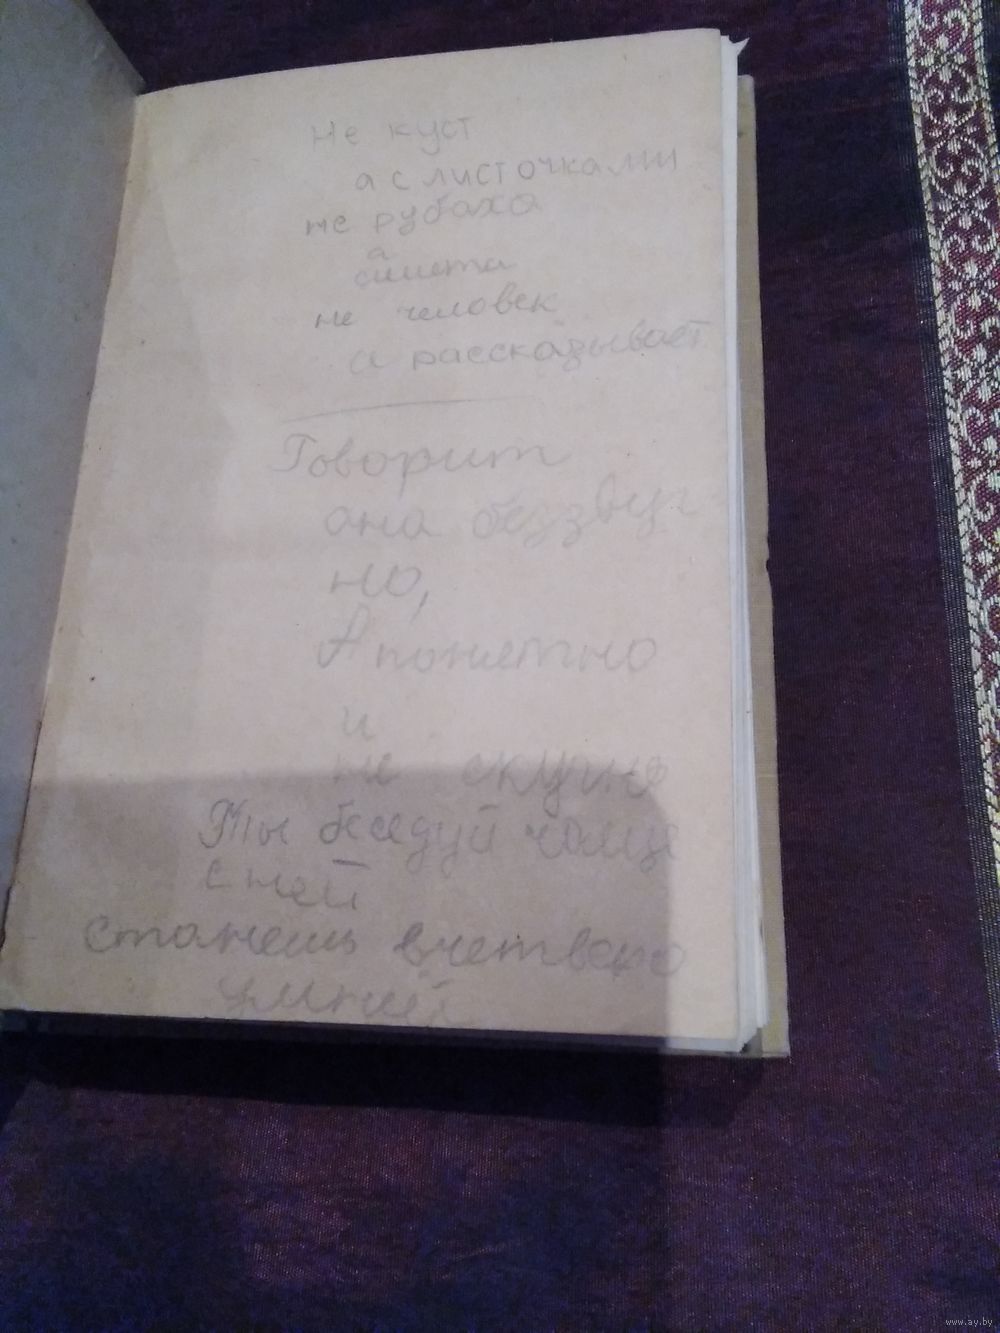 не куст
а с листочками
не рубаха
а
сшита
не человек
а рассказывает
Говорит
она беззвуч
но,
А понятно
и
не скучно
Ты беседуй чаще
с ней
станешь вчетверо
умней
www.ay.by